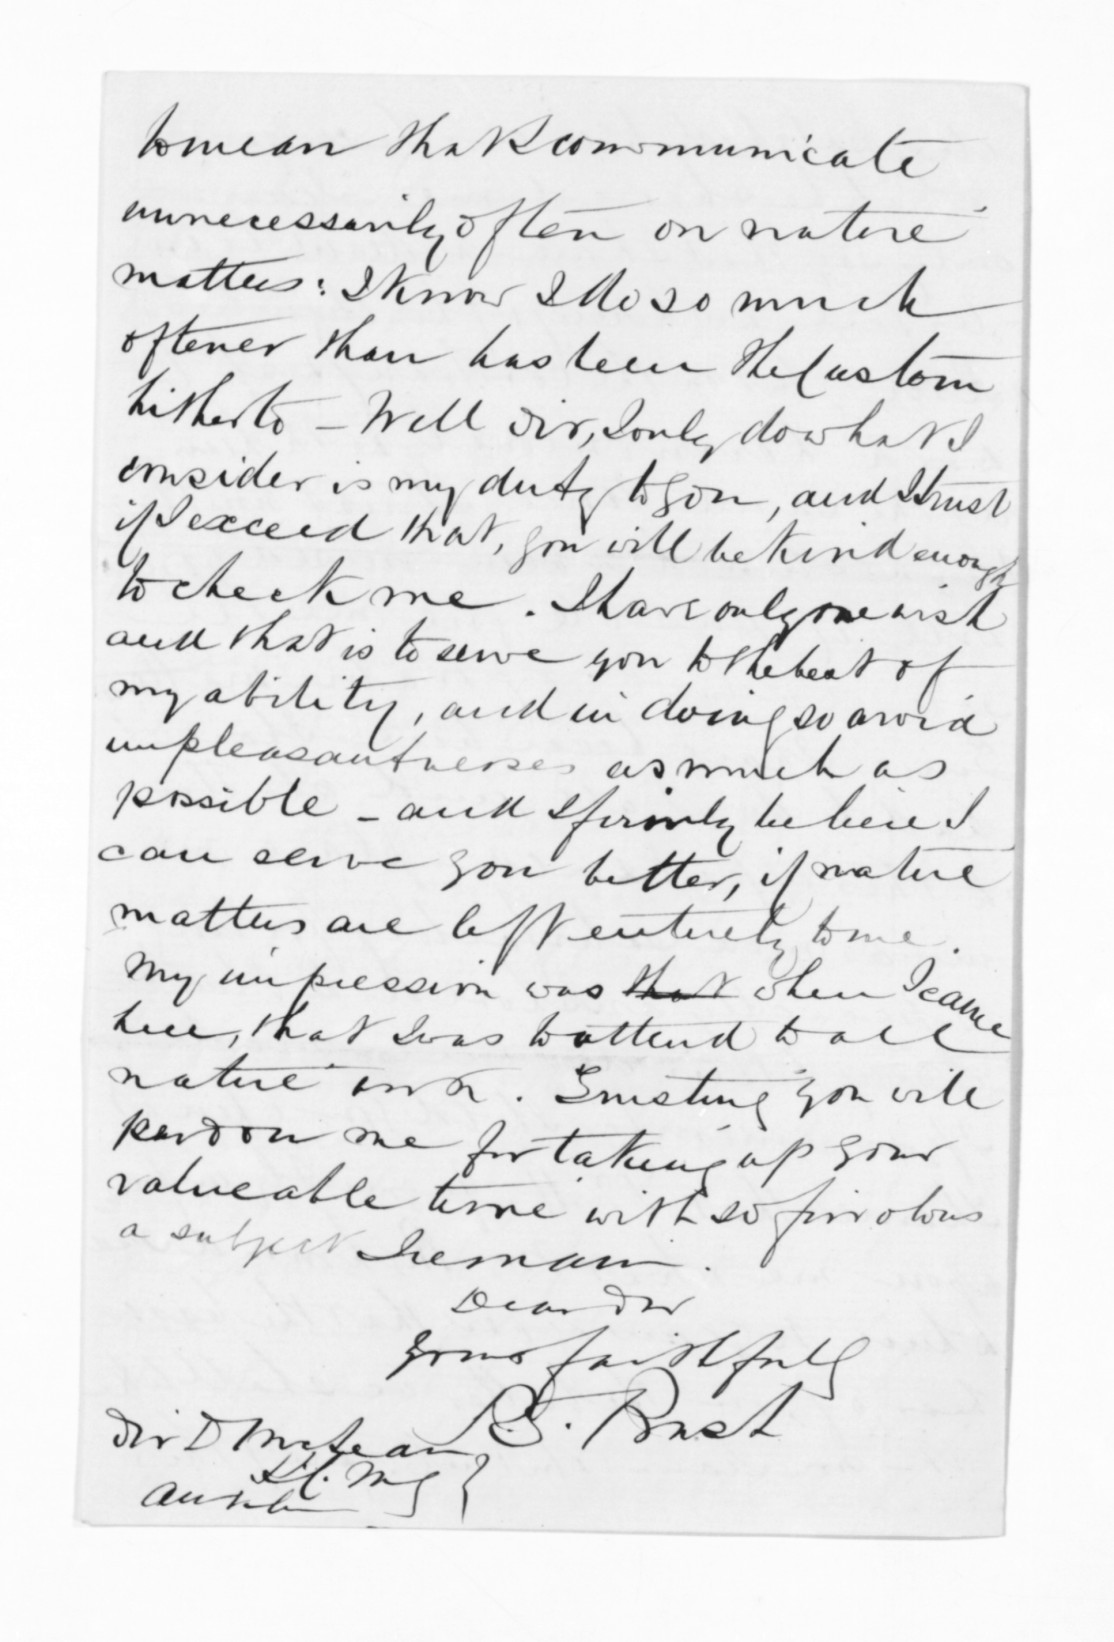 to mean that I communicate
unnecessarily often on native
matters: I know I do so much
oftener than has been the Custom
hitherto - Well Sir, I only do what I
consider is my duty to you, and I trust
if I exceed that, you will be kind enough
to check me. I have only one wish
and that is to serve you to the best of
my ability, and in doing so avoid
unpleasantnesses as much as
possible - and I firmly believe I
can serve you better, if native
matters are left entirely to me.
My impression was that when I came
here, that I was to attend to all
native work. Trusting you will
pardon me for taking up your
valueable time with so frivolous
a subject I remain.
Dear Sir
Yours faithfully
R.S. Bush
Sir D McLean
K.C.M.G
Auckland